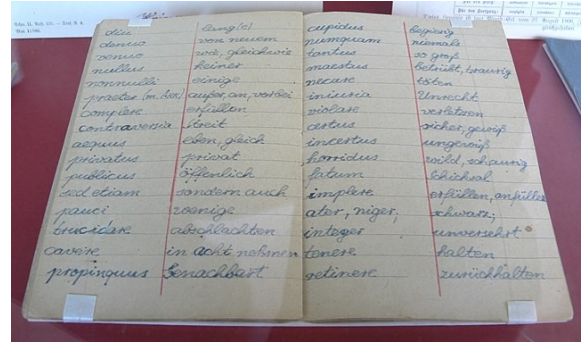 diu lang(e)
denuo von neuem
wie, gleichwie
nullus keiner
nonnulli einige
praeter (m. Acc) außer, an, vorbei
complere erfüllen
controversia Streit
aequus eben, gleich
privatus privat
publicus öffenlich
sed etiam sondern auch
pauci wenige
trucidare abschlachten
cavere in acht nehmen
propinquus benachbart
cupidus begierig
numquam niemals
tantus so groß
maestus betrübt, traurig
necare töten
iniuria Unrecht
violare verletzen
certus sicher, gewiß
incertus ungewiß
horridus wild, schaurig
fatum Schicksal
implere erfüllen, anfüllen
ater, niger, schwarz,
integer unversehrt
tenere halten
retinere zurückhalten